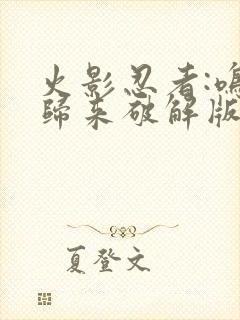 火影忍者:鳴
歸來破解版
夏登文